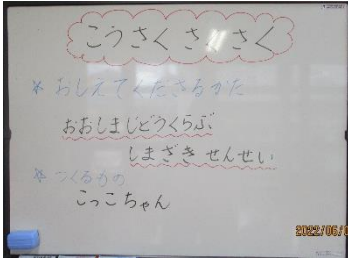 こうさくさくさく
*おしえてくださるかた
おおしまじどうくらぶ
しまざきせんせい
*つくるもの
こっこちゃん